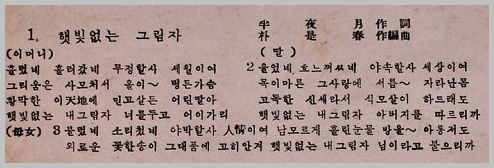 1. 햇빛없는 그림자
半夜月 作詞
朴是春 作編曲
(어머니)
흘렀네 흘러갔네 무정할사 세월이여
그리움은 사모쳐서 울이~ 병든가슴
황막한 이天地에 믿고살든 어린딸아
햇빛없는 내그림자 너를두고 어이가리
(딸)
2 울었네 흐느껴씨네 야속할사 세상이여
목이마른 그사랑에 서름~ 자라난몸
고독한 신세라서 식모살이 하드래도
햇빛없는 내그림자 아버지를 따르리까
(母女) 3 불렀네 소리쳤네 야박할사 人情이여 남모르게 흘린눈물 방울~ 아롱저도
외로운 꽃한송이 그대품에 고히안겨 햇빛없는 내그림자 님이라고 불으리까